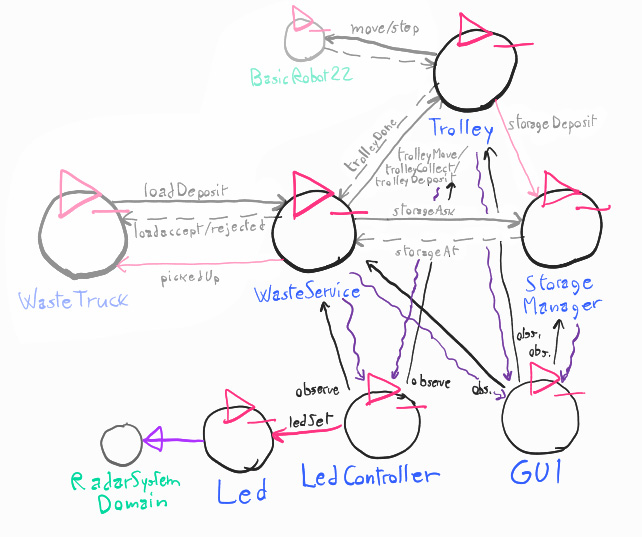 move/stop
BasicRobot22
Trolley
storageDeposit
trolleyDone
trolleyMove/
trolleyCollect/
trolleyDeposit
loadDeposit
loadaccept/rejected
storageAsk
storageAt
pickedUp
WasteTruck
WasteService
Storage
Manager
obs.
obs.
observe
observe
obs.
ledSet
RadarSystem
Domain
Led
LedController
GUI